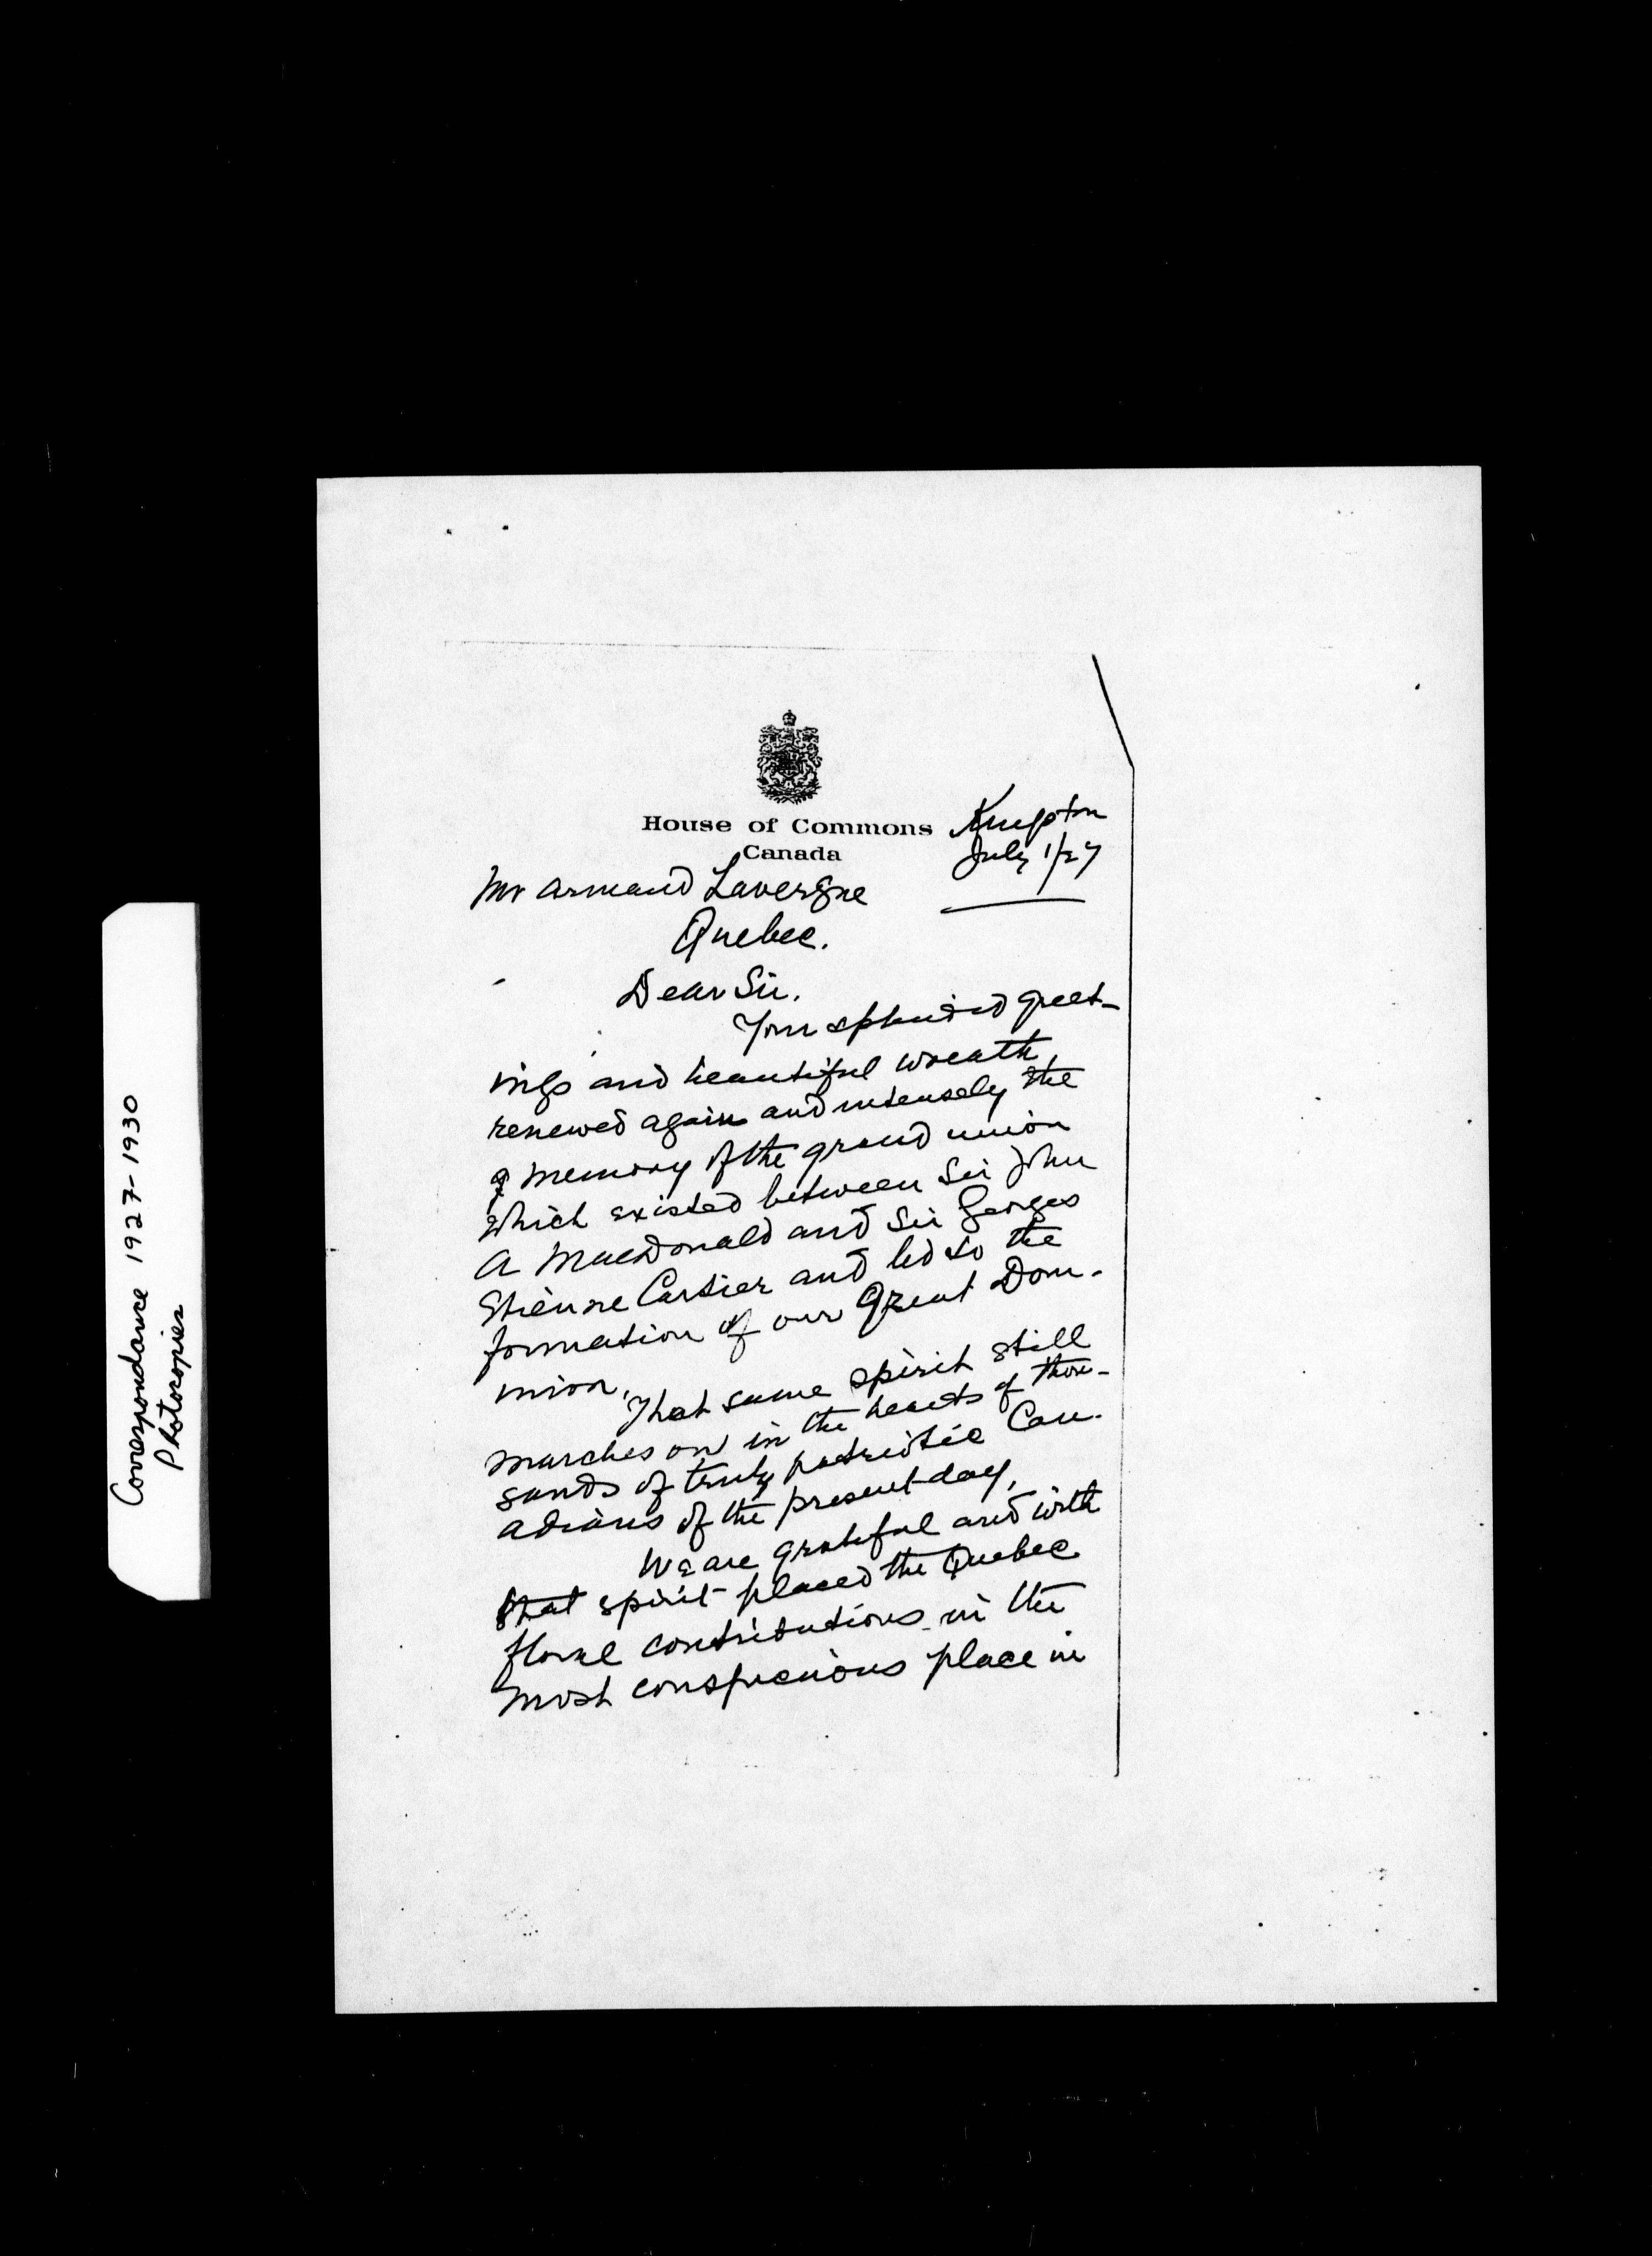 Correspondance 1927-1930
Photocopies
House of Commons
Canada
Kingston
July 1/27
Mr Armand Lavergne
Quebec.
Dear Sir.
Your splendid greet-
ings and beautiful wreath
renewed again and intensely the
memory of the grand union
which existed between Sir John
A MacDonald and Sir Georges
Etienne Cartier and led to the
formation of our Great Dom-
inion.
That same spirit still
marches on in the hearts of thou-
sands of truly patriotic Can-
adians of the present day.
We are grateful and with
that spirit placed the Quebec
floral contributions in the
most conspicuous place in